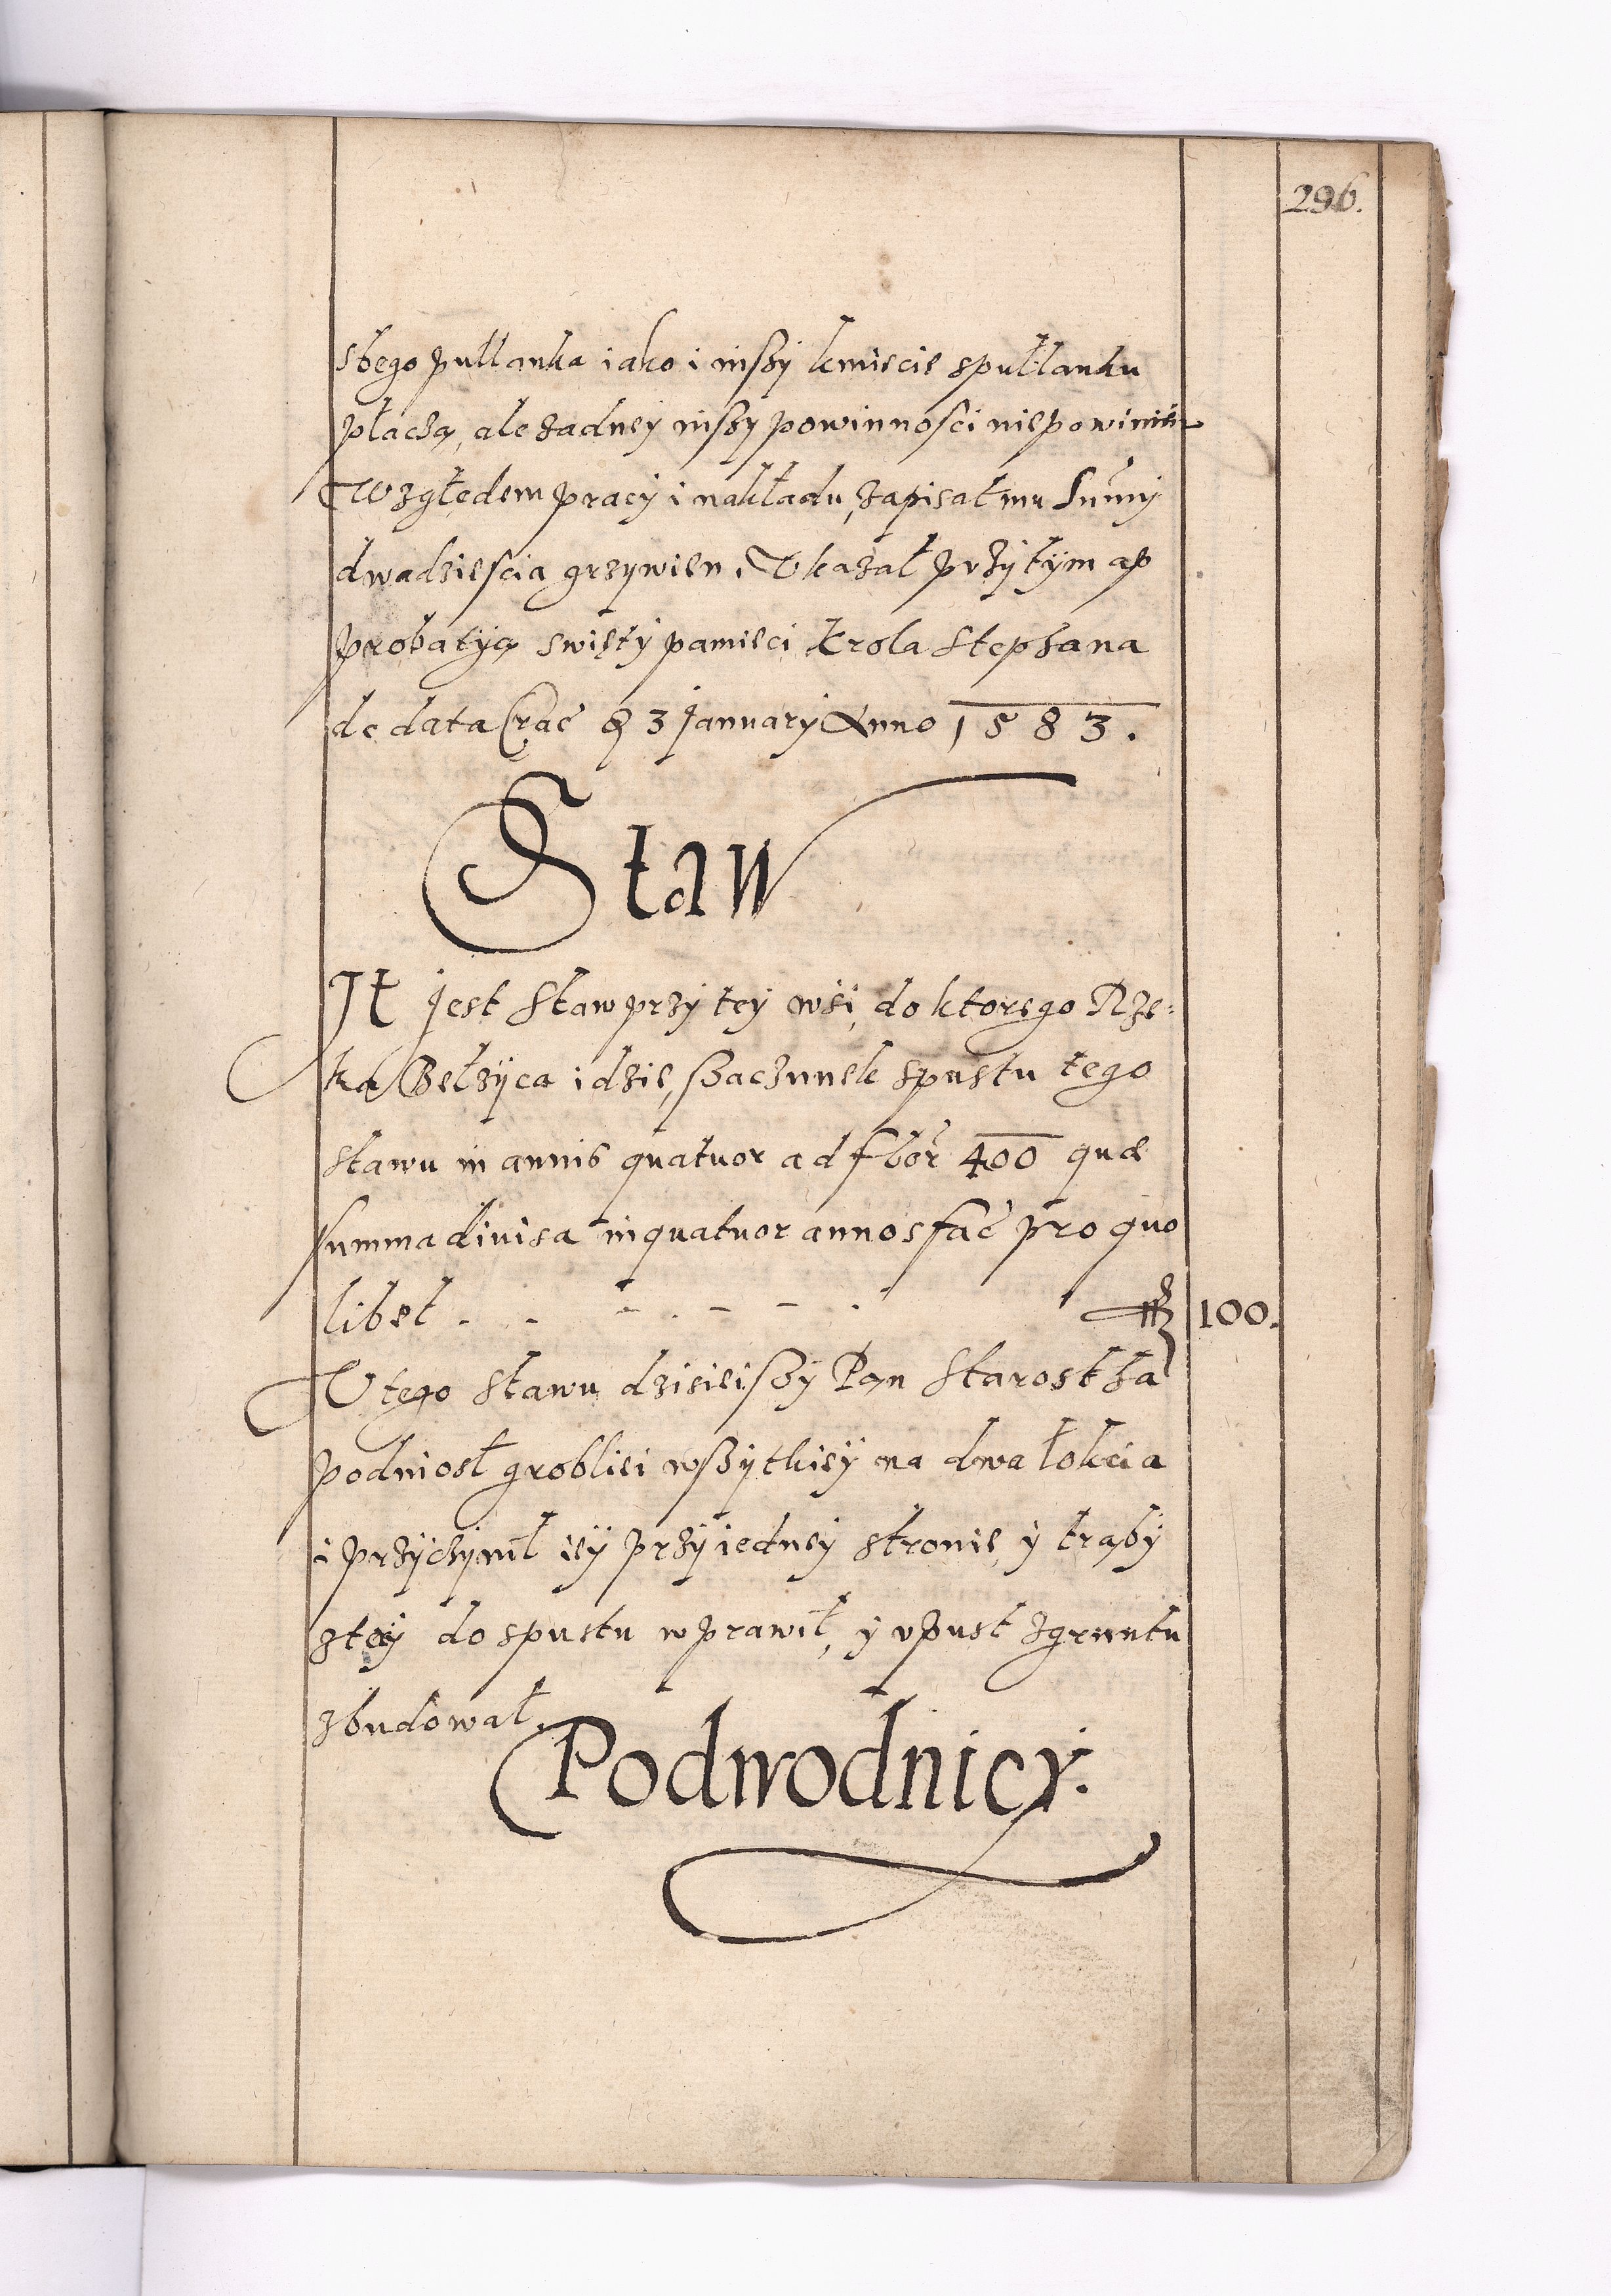 296.
stego pułlanka iako i inßy kmiecie spułlanku
płaczą, ale zadney inßy powinnosci niepowinien
Względem pracy i nakładu, zapisał mu Sumy
dwadziescia grzywien. Ukazał przytym ap
probatyą swięty pamięci Krola Stephana
de data Crac 23 January Anno 1583.
Staw
It Jest Staw przy tey wsi, do ktorego Rze:
ka Bełzyca idzie, ßaczunek spustu tego
stawu in annis quatuor ad flor 400 quæ
summa diuisa in quatuor annos fac pro quo
libet . . - . - - . 100.
U tego Stawu dzisieißy Pan Starosta
podniosł groblei wßytkiey na dwa łokcia
i przyczynił iey przy iedney stronie, y trąby
z tey do spustu wprawił, y upust z gruntu
zbudował.
Podwodnicy.